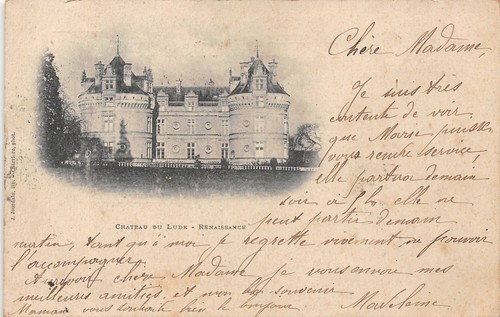 Chère Madame,
Je suis très
contente de voir
que Marie puisse
vous rendre service,
elle partira demain
soir à 5h elle ne
peut partir demain
matin, tant qu'à moi je regrette vivement ne pouvoir
l'accompagner.
Aurevoir chère Madame je vous envoie mes
meilleures amitiés et mon bon souvenir
Maman vous souhaite bien le bonjour
Madeleine
CHATEAU DU LUDE - RENAISSANCE
phot.